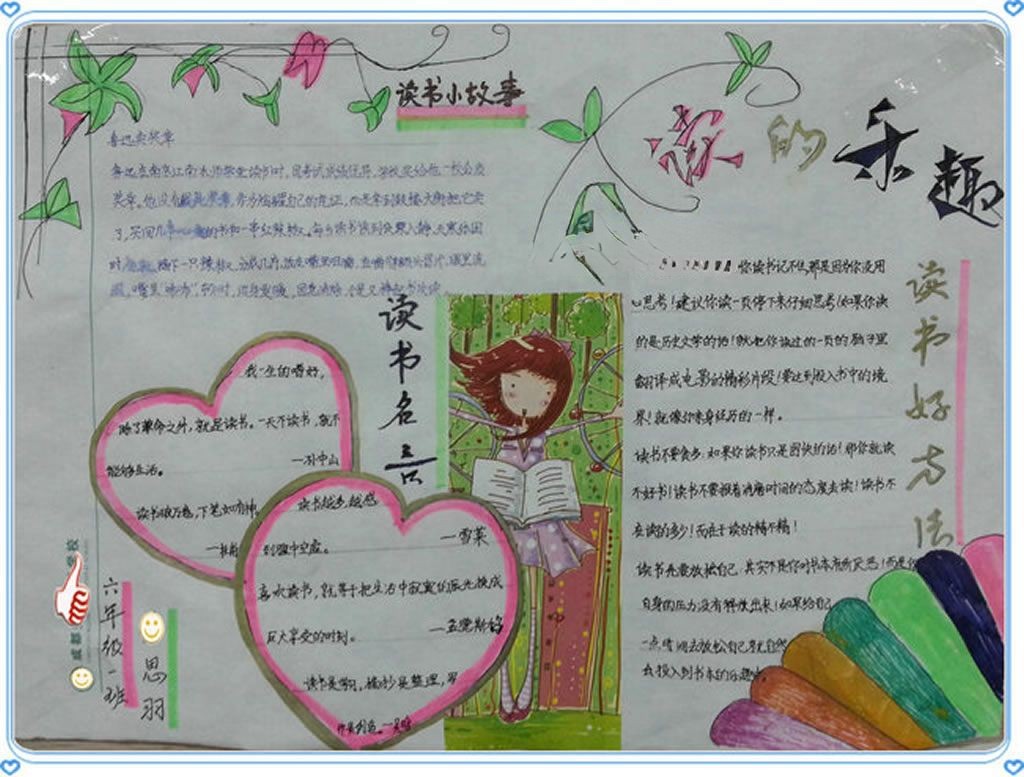 读书小故事
读的乐趣
鲁迅卖奖章
鲁迅在南京江南水师学堂读书时,因考试成绩优异,学校奖给他一枚金质
奖章。他没有
自己的凭证,而是拿到鼓楼大街把它卖
了,买回几
的书和一串红辣椒。每当读书读到夜深人静、天寒
时
摘下一只辣椒,分成几片,放在嘴里咀嚼,
读书名言
我一生的嗜好,
除了革命之外,就是读书。一天不读书,就不
能够生活。
—孙中山
读书破万卷,下笔如有神。
读书越多,越感
到腹中空虚。
—雪莱
喜欢读书,就等于把生活中寂寞的辰光换成
巨大享受的时刻。
—孟德斯鸠
读书是学习,摘抄是整理,写
作是创造。
读书好方法
你读书记不住,那是因为你没用
心思考!建议你读一页停下来仔细思考!如果你读
的是历史文学的话!就把你读过的一页的脑子里
翻译成电影的精彩片段!要达到投入书中的境
界!就像你亲身经历的一样。
读书不要贪多:如果你读书只是图快的话!那你就读
不好书!读书不要报着消磨时间的态度去读!读书不
在读的多少!而在于读的精不精!
读书先要放松自己:其实不是你对书本有所厌恶!而是你
自身的压力没有释放出来!如果给自己
一点时间去放松自己就自然
去投入到书本的乐趣
六年级一班
思羽
成都
学校